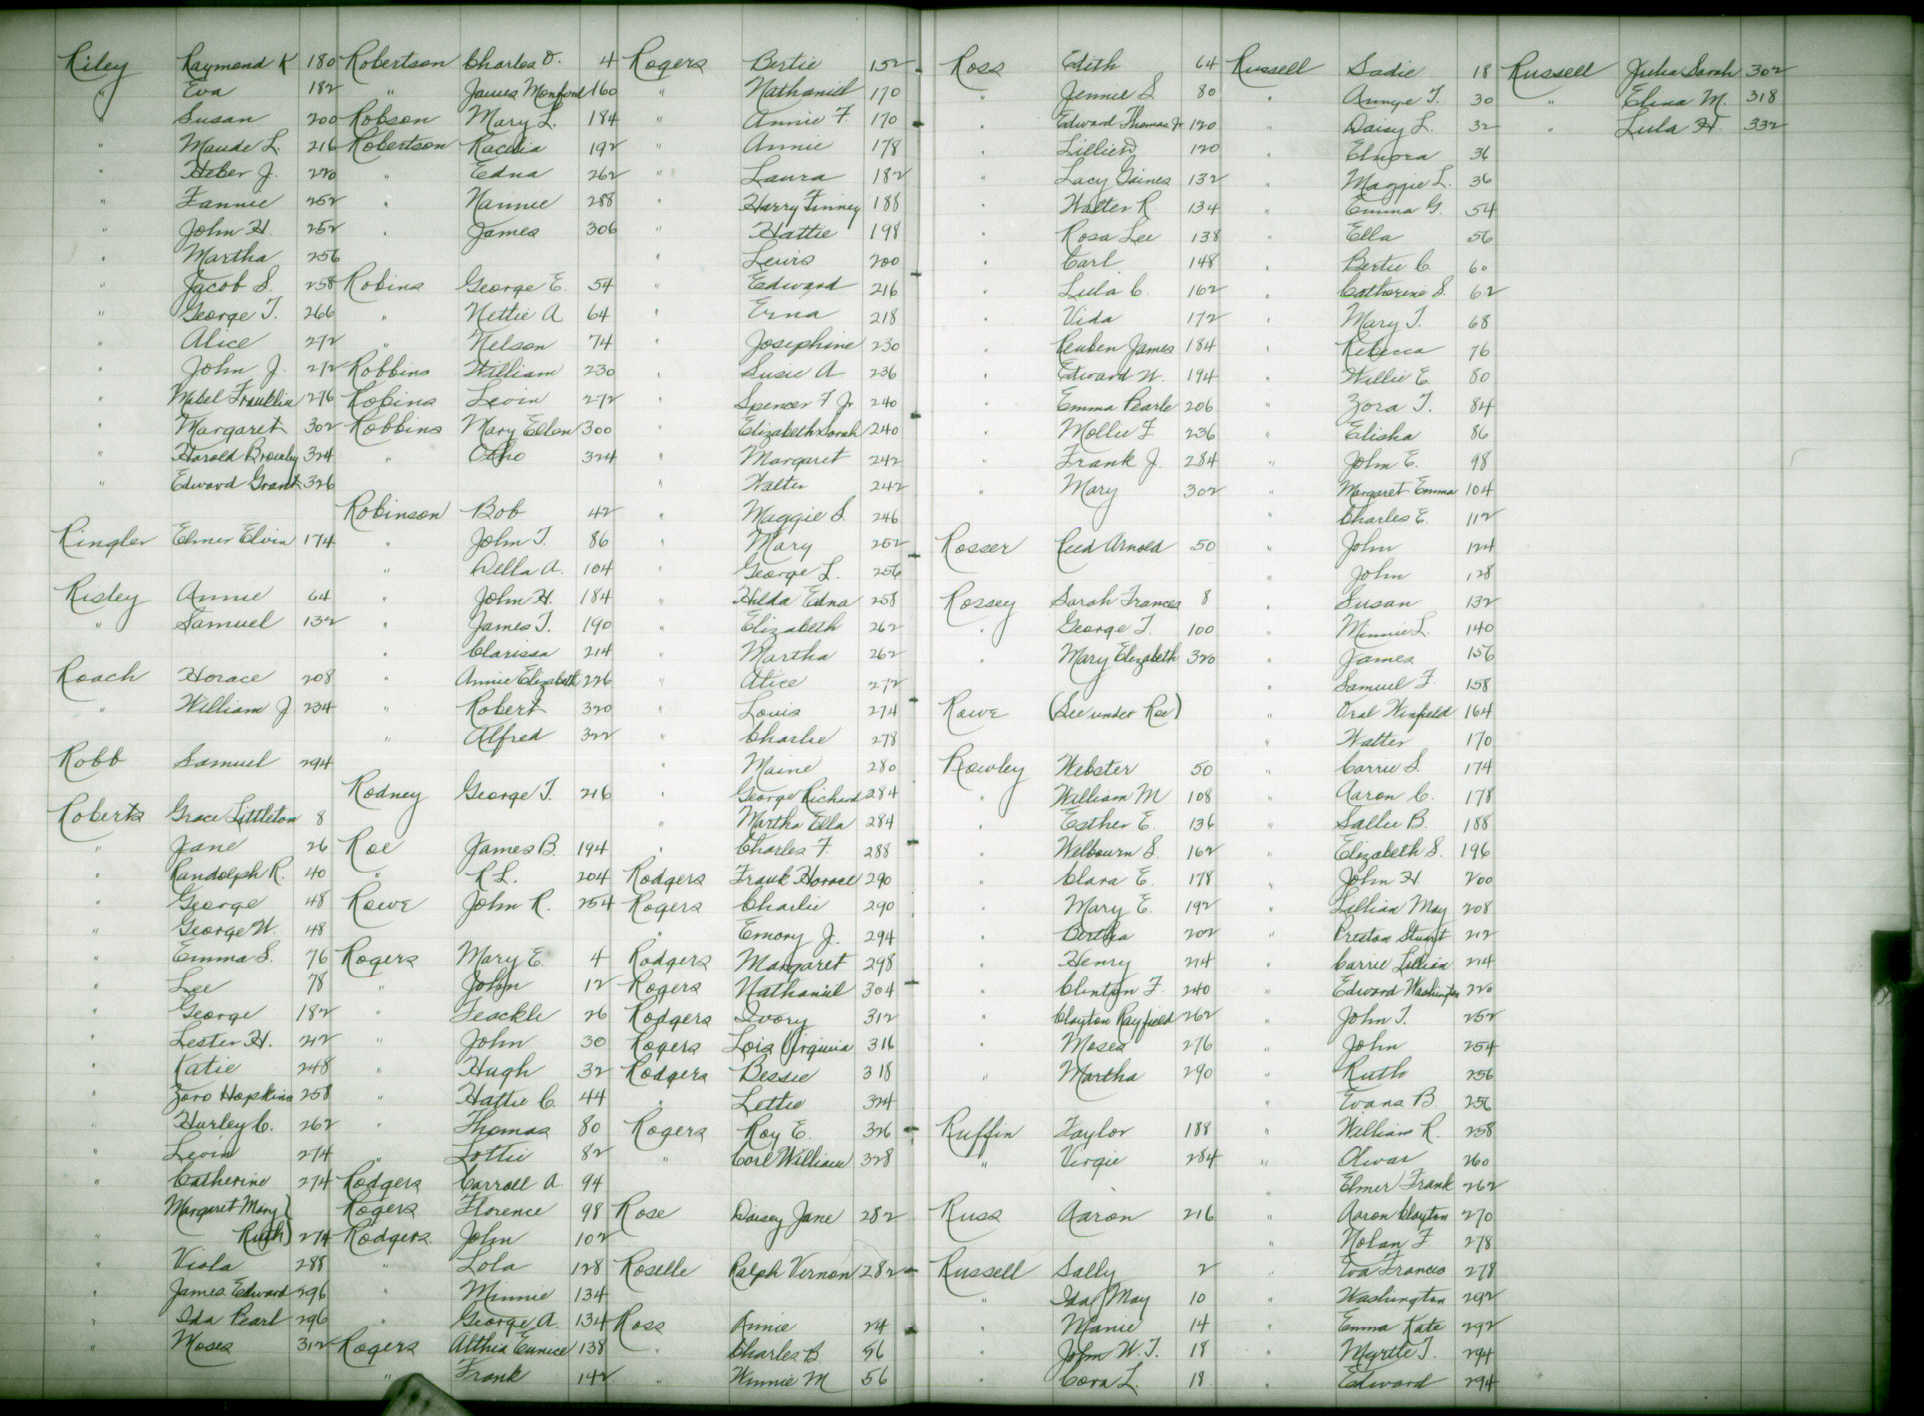 Riley Raymond K 180
" Eva 182
" Susan 200
" Maude L. 216
" Heber J. 220
" Fannie 252
" John H. 252
" Martha 256
" Jacob S. 258
" George T. 266
" Alice 272
" John J. 272
" Mabel Franklin 276
" Margaret 302
" Harold Brawley 324
" Edward Grant 326
Ringler Elmer Elvin 174
Risley Annie 64
" Samuel 132
Roach Horace 208
" William J 234
Robb Samuel 294
Roberts Grace Littleton 8
" Jane 26
" Randolph R. 40
" George 48
" George W. 48
" Emma S. 76
" Lee 78
" George 182
" Lester H. 212
" Katie 248
" Zoro Hopkins 258
" Hurley C. 262
" Levin 274
" Catherine 274
Margaret Mary }
" Ruth } 274
" Viola 288
" James Edward 296
" Ida Pearl 296
" Moses 312
Robertson Charles O. 4
" James Monford 160
Robson Mary L. 184
Robertson Rachia 192
" Edna 262
" Nannie 288
" James 306
Robins George E. 54
" Nettie A 64
" Nelson 74
Robbins William 230
Robins Levin 272
Robbins Mary Ellen 300
" Otho 324
Robinson Bob 42
" John T. 86
" Della A. 104
" John H. 184
" James T. 190
" Clarissa 214
" Annie Elizabeth 226
" Robert 320
" Alfred 322
Rodney George T. 216
Roe James B. 194
" R L. 204
Rowe John R. 254
Rogers Mary E. 4
" John 12
" Teackle 26
" John 30
" Hugh 32
" Hattie C. 44
" Thomas 80
" Lottie 82
Rodgers Carroll A. 94
Rogers Florence 98
Rodgers John 102
" Lola 128
" Minnie 134
" George A. 134
Rogers Althea Eunice 138
" Frank 142
Rogers Bertie 152
" Nathaniel 170
" Annie F. 170
" Annie 178
" Laura 182
" Harry Finney 188
" Hattie 198
" Lewis 200
" Edward 216
" Erna 218
" Josephine 230
" Susie A. 236
" Spencer F Jr. 240
" Elizabeth Sarah 240
" Margaret 242
" Walter 242
" Maggie S. 246
" Mary 252
" George L. 256
" Hilda Edna 258
" Elizabeth 262
" Martha 262
" Alice 272
" Louis 274
" Charlie 278
" Maine 280
" George Richard 284
" Martha Ella 284
" Charles F. 288
Rodgers Frank Horace 290
Rogers Charlie 290
" Emory J. 294
Rodgers Margaret 298
Rogers Nathaniel 304
Rodgers Ivory 312
Rogers Lois Virginia 316
Rodgers Bessie 318
" Lettie 324
Rogers Roy E. 326
" Carl William 328
Rose Daisey Jane 282
Roselle Ralph Vernon 282
Ross Annie 24
" Charles B 56
" Winnie M 56
Ross Edith 64
" Jennie S 80
" Edward Thomas Jr 120
" Lillie D 120
" Lacy Gaines 132
" Walter R 134
" Rosa Lee 138
" Carl 148
" Lula C. 162
" Vida 172
" Reuben James 184
" Edward W. 194
" Emma Pearle 206
" Mollie F 236
" Frank J. 284
" Mary 302
Rosser Reed Arnold 50
Rossey Sarah Frances 8
" George T. 100
" Mary Elizabeth 320
Rowe (See under Roe)
Rowley Webster 50
" William M 108
" Esther E. 136
" Welbourn S. 162
" Clara E. 178
" Mary E. 192
" Bertha 202
" Henry 214
" Clinton F. 240
" Clayton Rayfield 262
" Moses 276
" Martha 290
Ruffin Taylor 188
" Virgie 284
Russ Aaron 216
Russell Sally 2
" Ida May 10
" Mamie 14
" John W. T. 18
" Cora L. 18
Russell Sadie 18
" Annye T. 30
" Daisy L. 32
" Elnora 36
" Maggie L. 36
" Emma G. 54
" Ella 56
" Bertie C. 60
" Catherine S. 62
" Mary T. 68
" Rebecca 76
" Willie E. 80
" Zora T. 84
" Elisha 86
" John E. 98
" Margaret Emma 104
" Charles E. 112
" John 124
" John 128
" Susan 132
" Minnie L. 140
" James 156
" Samuel F. 158
" Oral Winfield 164
" Walter 170
" Carrie S. 174
" Aaron C. 178
" Sallie B. 188
" Elizabeth S. 196
" John H 200
" Lillian May 208
" Preston Stuart 212
" Carrie Lillian 214
" Edward Washington 220
" John T. 252
" John 254
" Ruth 256
" Evans B 256
" William R. 258
" Olivar 260
" Elmer Frank 262
" Aaron Clayton 270
" Nolan F 278
" Eva Francis 278
" Washington 292
" Emma Kate 292
" Myrtle T. 294
" Edward 294
Russell Julia Sarah 302
" Elina M. 318
" Lula H. 332